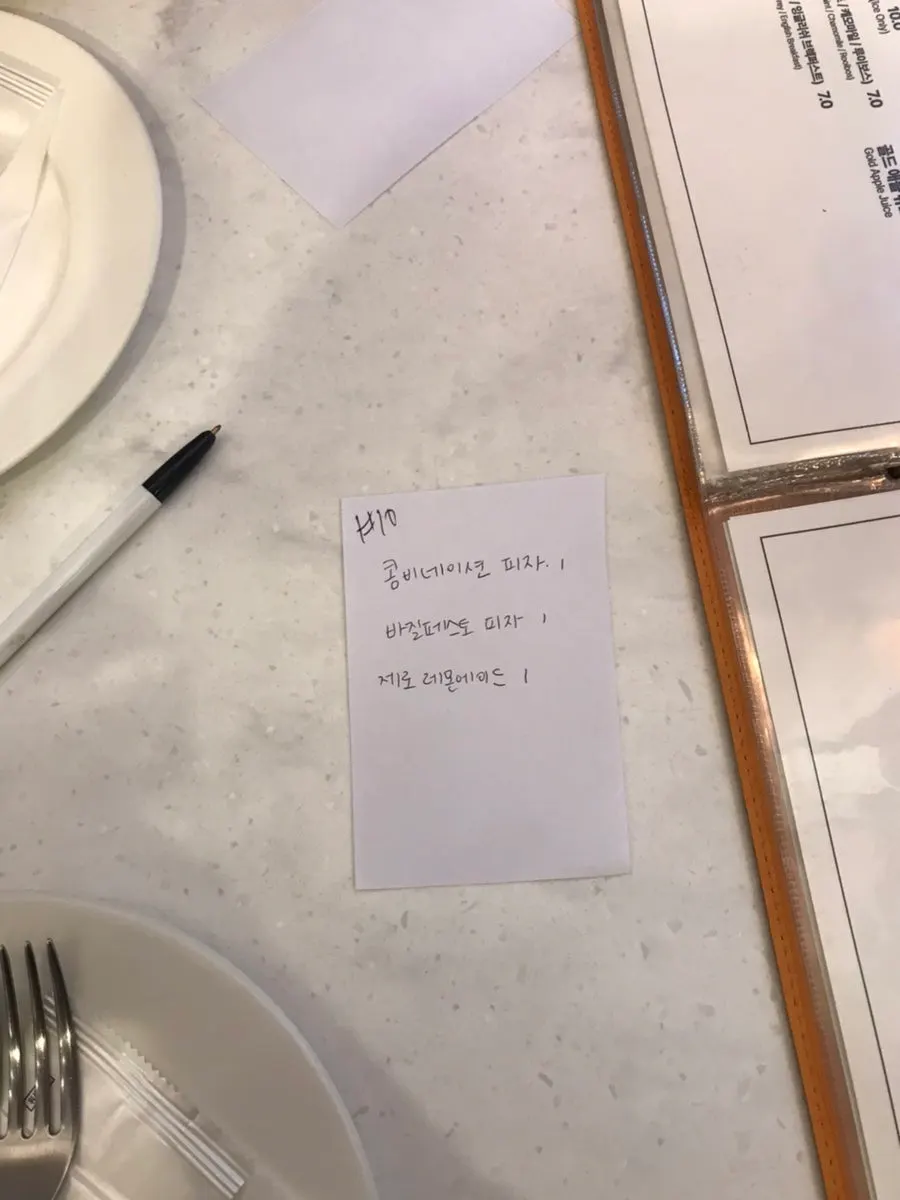 #10
콤비네이션 피자. 1
바질페스토 피자 1
제로 레몬에이드 1
10.0
(Ice Only)
/ 캐모마일 / 루이보스) 7.0
/ Chamomile / Rooibos)
/ 잉글리쉬 브랙퍼스트) 7.0
/ English Breakfast)
골드 애플
Gold Apple Juice